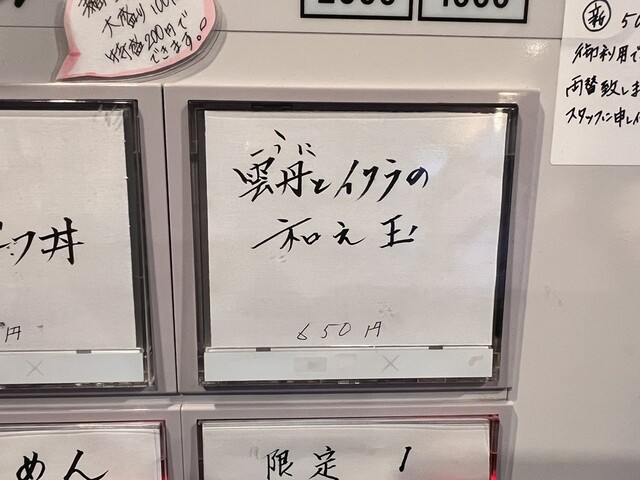 大盛り100円
特盛200円で
できます。
新 50
御利用で
両替致しま
スタッフに申し付
うに
雲丹とイクラの
和え玉
650円
フ丼
円
めん
限定 1